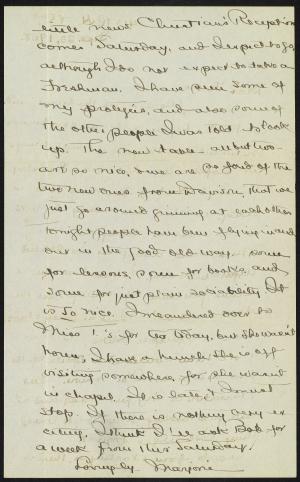 little news. Christians Reception
comes Saturday, and I expect to go,
although I do not expect to take a
Freshman. I have seen some of
my protegées, and also some of
the other people I was told to look
up. The new table - all but two -
are so nice, & we are so fond of the
two new ones from Davison, that we
just go around grinning at each other
tonight people have been flying in and
out in the good old way. some
for lessons, some for books, and
some for just plain sociability. It
is so nice. I meandered over to
Miss I's for tea today, but she wasn't
home. I have a hunch she is off
visiting somewhere, for she wasn't
in chapel. It is late, & I must
stop. If there is nothing very ex
citing, I think I'll ask Bob for
a week from this Saturday.
Lovingly Marjorie